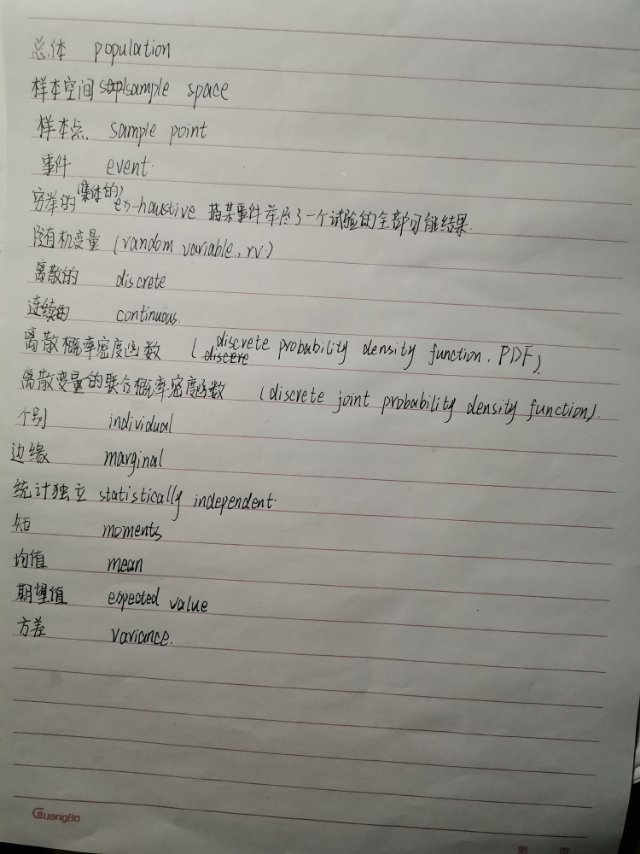 总体 population
样本空间 sample space
样本点 sample point
事件 event.
穷举的(集体的) ex-haustive 指某事件举尽了一个试验的全部可能结果.
随机变量 (random variable, rv)
离散的 discrete
连续的 continuous.
离散概率密度函数 (discrete probability density function, PDF).
离散变量的联合概率密度函数 (discrete joint probability density function).
个别 individual
边缘 marginal
统计独立 statistically independent.
矩 moments
均值 mean
期望值 expected value
方差 variance.
GuangBo
第 页